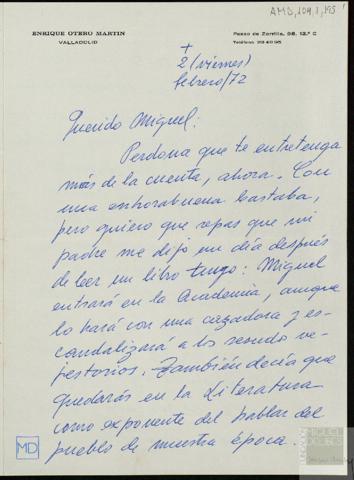 AMD, 109, 1, 195
ENRIQUE OTERO MARTIN
VALLADOLID
Paseo de Zorrilla, 98, 12.º C
+
2 (viernes)
febrero/72
Querido Miguel:
Perdona que te entretenga
más de la cuenta, ahora. Con
una enhorabuena bastaba,
pero quiero que sepas que mi
padre me dijo un día después
de leer un libro tuyo: Miguel
entrará en la Academia, aunque
lo hará con una cazadora y es-
candalizará a los seudo ve-
jestorios. También decía que
quedarás en la Literatura
como exponente del hablar del
pueblo de nuestra época.
MD
FUNDACIÓN
MIGUEL
DELIBES